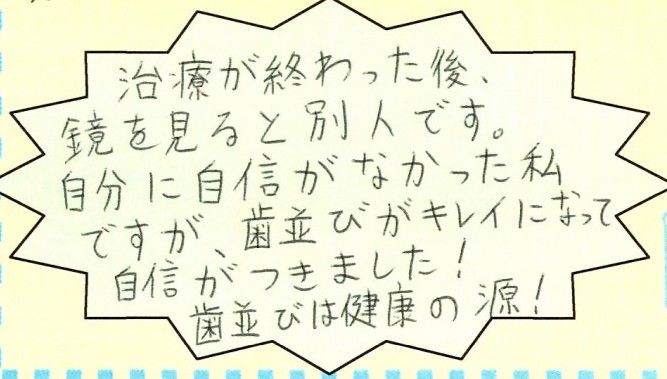 治療が終わった後、
鏡を見ると別人です。
自分に自信がなかった私
ですが、歯並びがキレイになって
自信がつきました！
歯並びは健康の源！